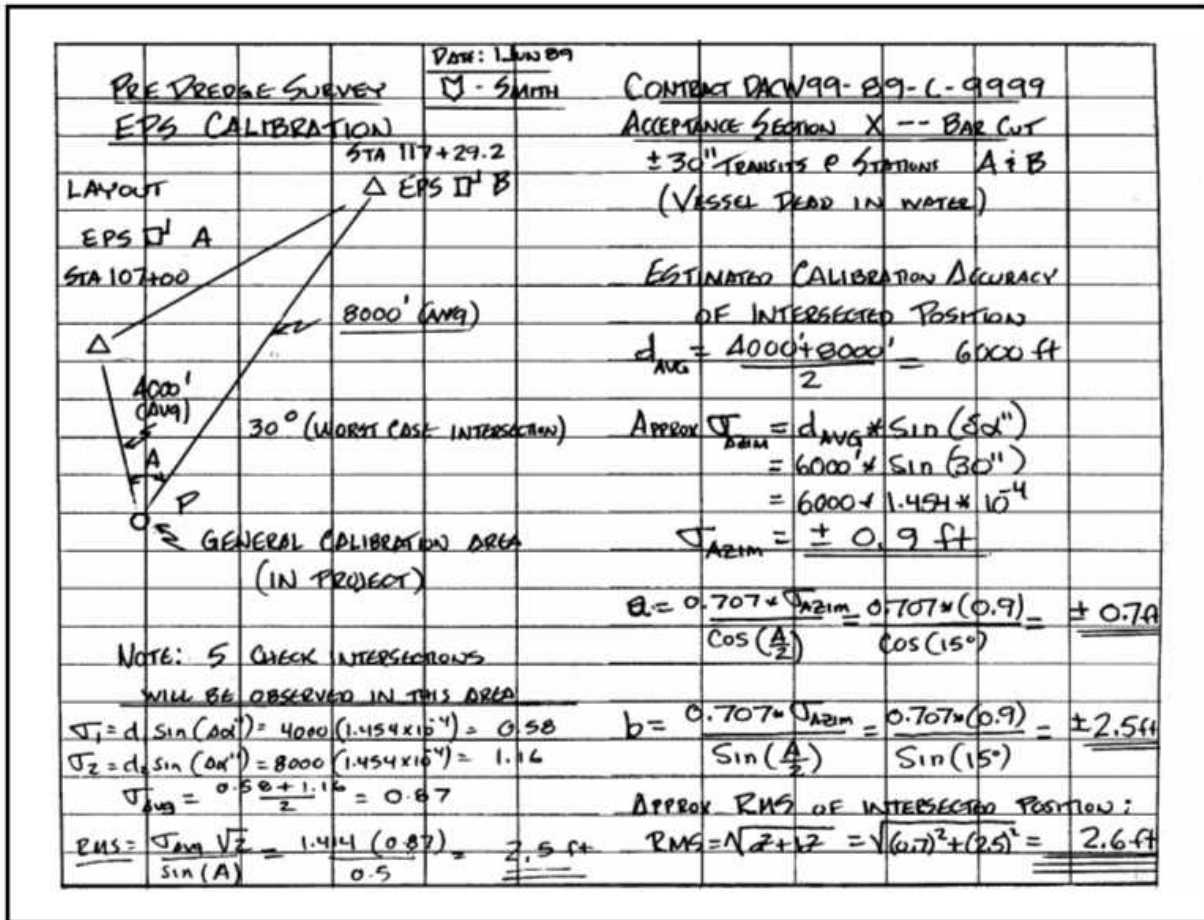 DATE: 1 JUN 89
PRE DREDGE SURVEY
- SMITH
EPS CALIBRATION
STA 117+29.2
LAYOUT
△ EPS B
EPS A
STA 107+00
8000' (AVG)
△
4000'
(AVG)
30° (WORST CASE INTERSECTION)
A
P
GENERAL CALIBRATION AREA
(IN PROJECT)
NOTE: 5 CHECK INTERSECTIONS
WILL BE OBSERVED IN THIS AREA
σ₁ = d₁ sin (Δα") = 4000 (1.454x10⁻⁴) = 0.58
σ₂ = d₂ sin (Δα") = 8000 (1.454x10⁻⁴) = 1.16
σavg = 0.58 + 1.16 / 2 = 0.87
RMS = σavg √2 / sin (A) = 1.414 (0.87) / 0.5 = 2.5 ft
CONTRACT DACW99-89-C-9999
ACCEPTANCE SECTION X -- BAR CUT
±30" TRANSITS @ STATIONS A & B
(VESSEL DEAD IN WATER)
ESTIMATED CALIBRATION ACCURACY
OF INTERSECTED POSITION
d AVG = 4000'+8000' / 2 = 6000 ft
APPROX σ AZIM = d AVG * Sin (δα")
= 6000' * Sin (30")
= 6000 * 1.454 * 10⁻⁴
σ AZIM = ± 0.9 ft
a = 0.707 * σ AZIM / Cos (A/2) = 0.707 * (0.9) / Cos (15°) = ± 0.7 ft
b = 0.707 * σ AZIM / Sin (A/2) = 0.707 * (0.9) / Sin (15°) = ± 2.5 ft
APPROX RMS OF INTERSECTED POSITION:
RMS = √a²+b² = √(0.7)²+(2.5)² = 2.6 ft